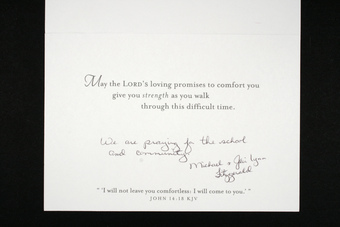 May the LORD's loving promises to comfort you
give you strength as you walk
through this difficult time.
We are praying for the school
and community.
Michael + Jeri Lynn
Fitzgerald
" 'I will not leave you comfortless: I will come to you.' "
JOHN 14:18 KJV